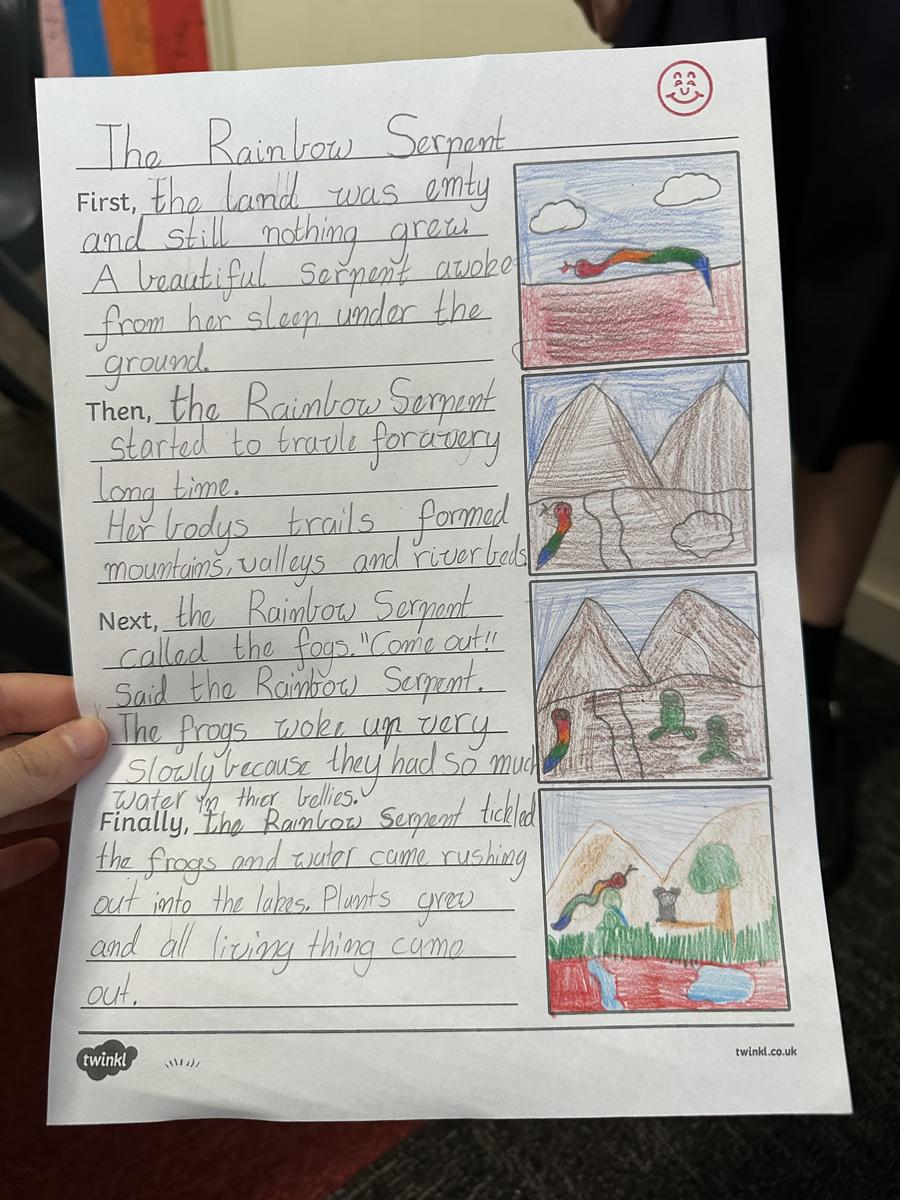 The Rainbow Serpent
First, the land was emty
and still nothing grew.
A beautiful serpent awoke
from her sleep under the
ground.
Then, the Rainbow Serpent
started to travle for a very
long time.
Her bodys trails formed
mountains, valleys and riverbeds.
Next, the Rainbow Serpent
called the fogs. "Come out!!
Said the Rainbow Serpent.
The frogs woke up very
Slowly because they had so much
water in thier bellies.
Finally, the Rainbow Serpent tickled
the frogs and water came rushing
out into the lakes. Plants grew
and all living thing came
out.
twinkl
twinkl.co.uk